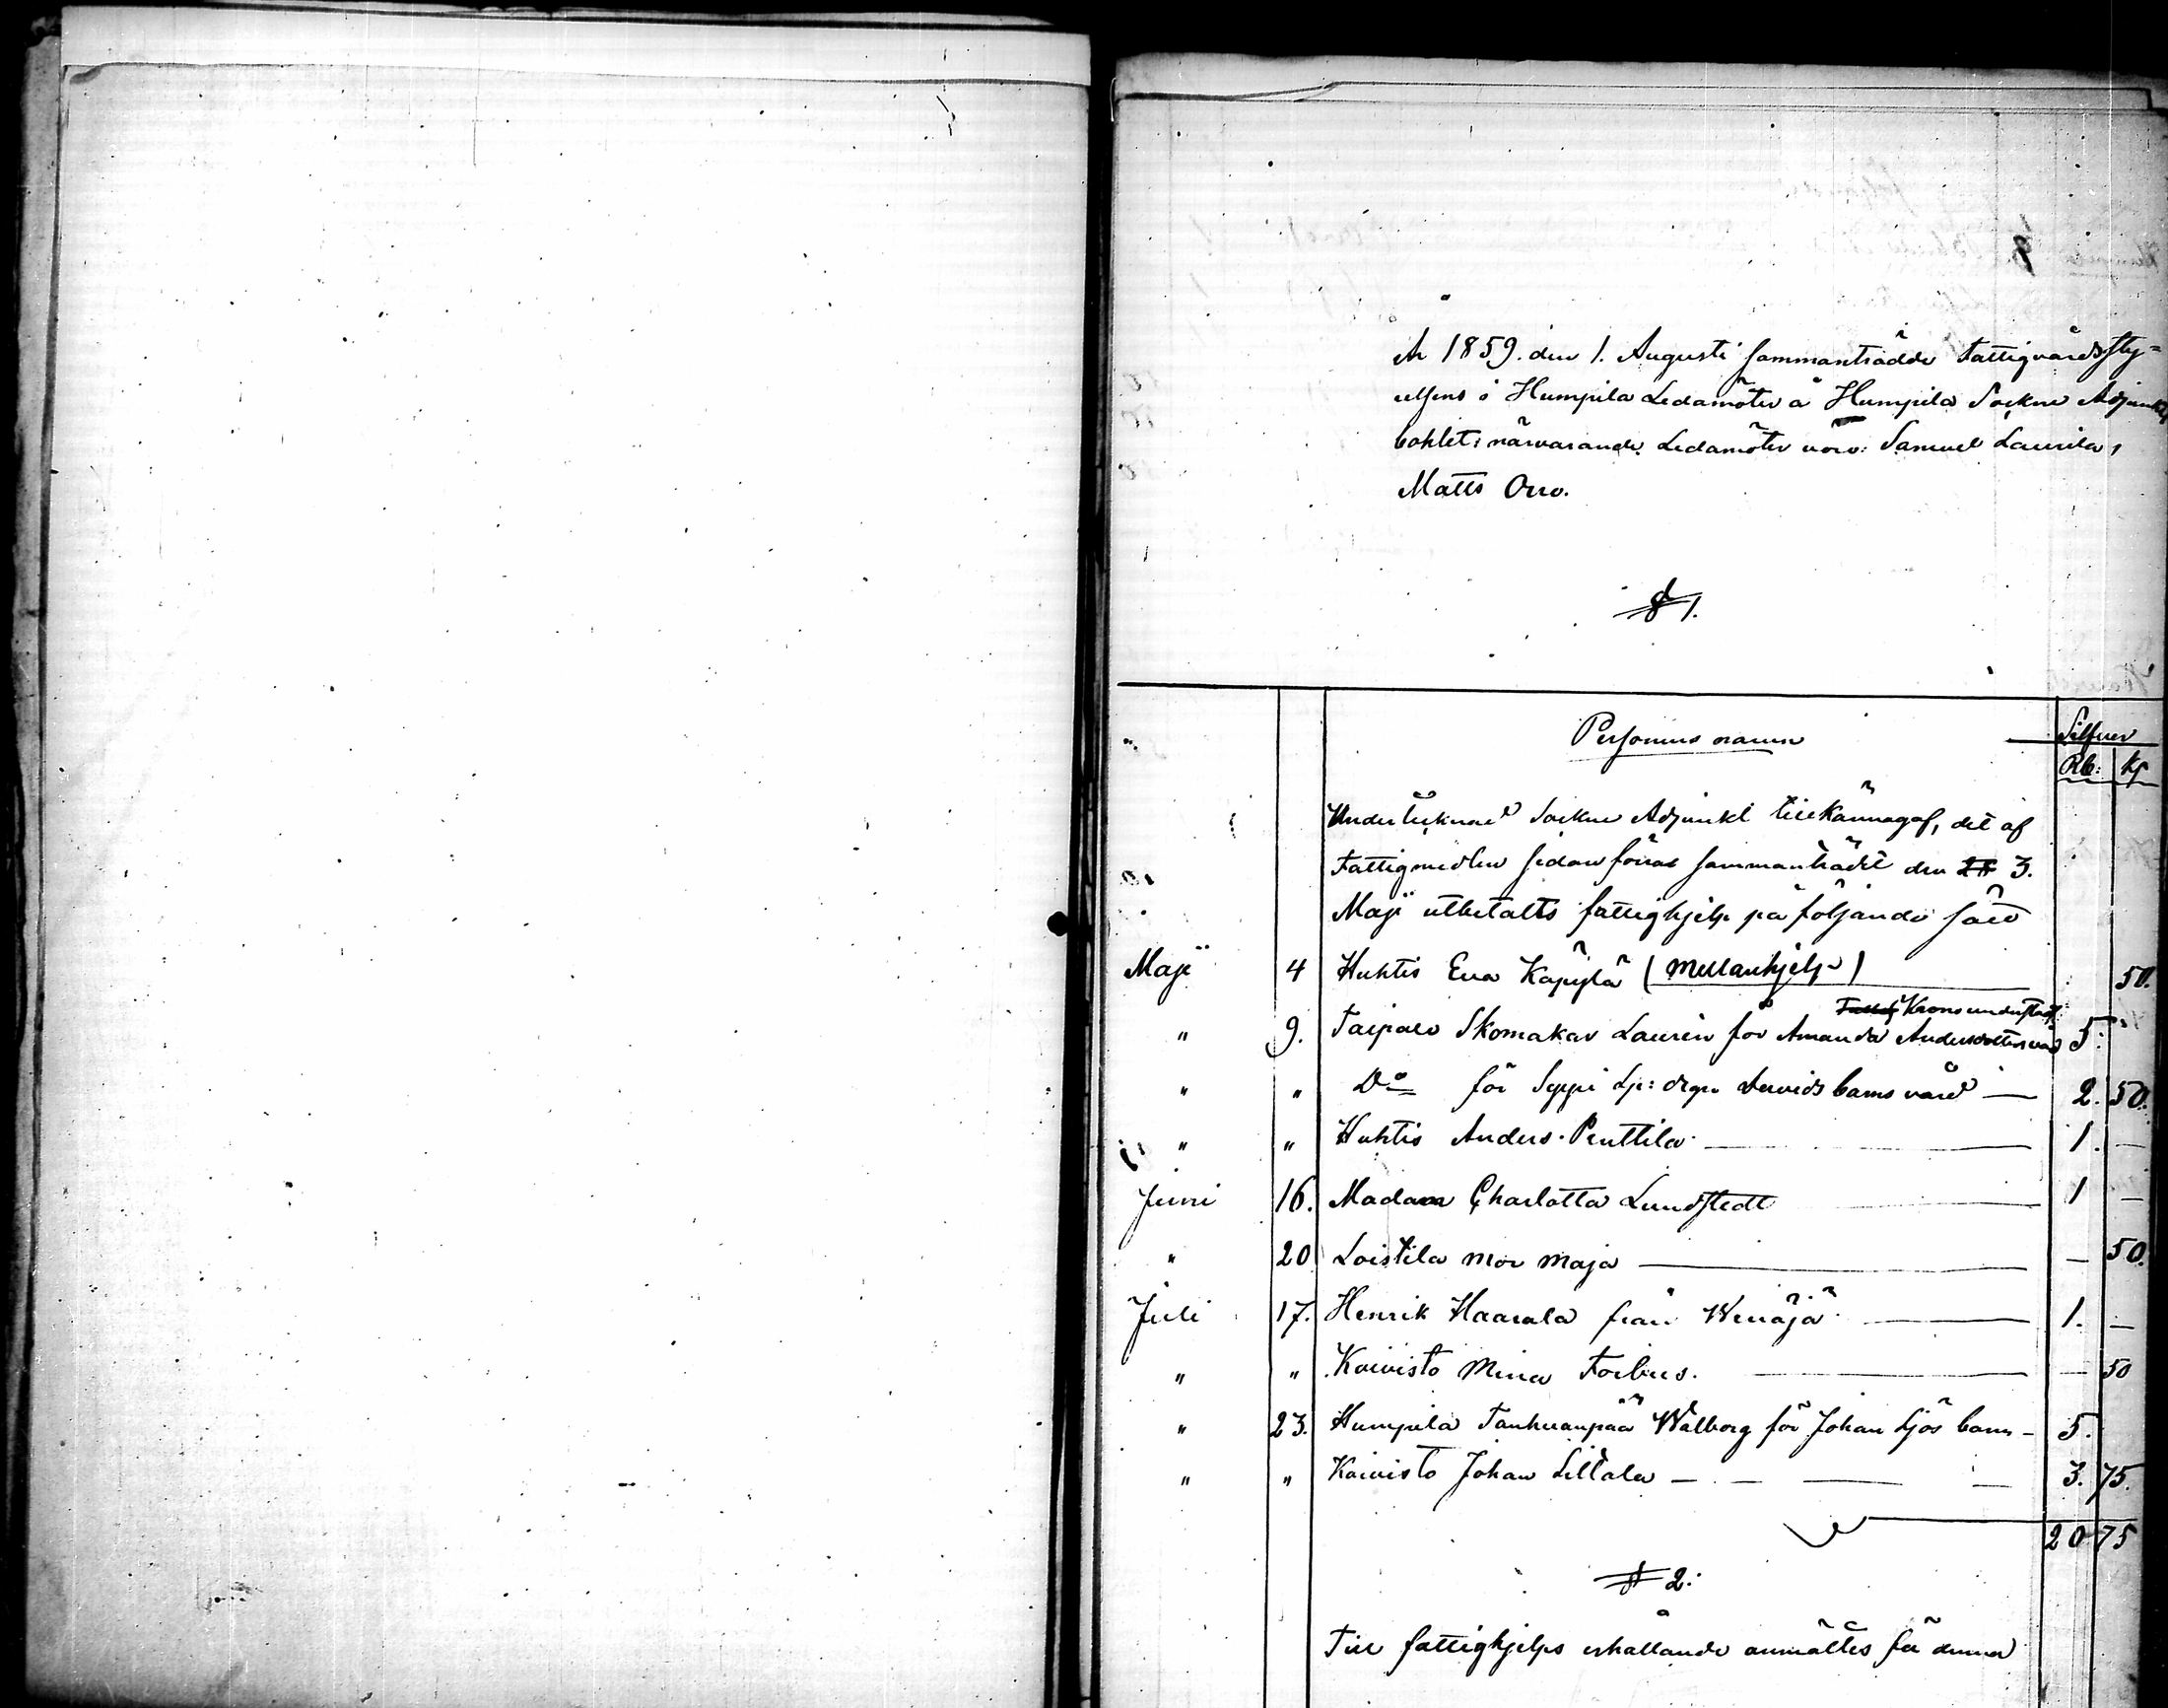 År 1859. den 1. Augusti sammanträdde Fattigvårdssty=
relsens i Humpila Ledamöter å Humpila Sockne Adjunkts
bohlet; närvarande Ledamöter voro: Samuel Laurila,
Matts Orro.
§ 1.
Personens namn
Silfver
Rb: Kp
Undertecknad Sockne Adjunkt tillkännagaf, det af
Fattigmedlen sedan förra sammanträdet den 3.
Maji utbetalts fattighjelp på följande sätt
Maji 4 Huhtis Eva Käpylä (Mellanhjelp) 50.
Kronounderstöd
" 9. Taipale Skomakar Laurén för Amanda Andersdotters vård 5.
" " Do för Seppi Sp: dgn barns vård — 2. 50.
" " Huhtis Anders Penttila — 1. —
Juni 16. Madam Charlotta Lundstedt — 1 —
" 20 Loistila mor Maja — — 50.
Juli 17. Henrik Haarala från Wenäjä — 1. —
" " Koivisto Mina Forbus. — — 50
" 23. Humpila Tanhuanpää Walborg för Johan Sjös barn — 5.
" " Koivisto Johan Sillala — — — — 3. 75.
20 75
§ 2.
Till fattighjelps erhållande anmältes på denna